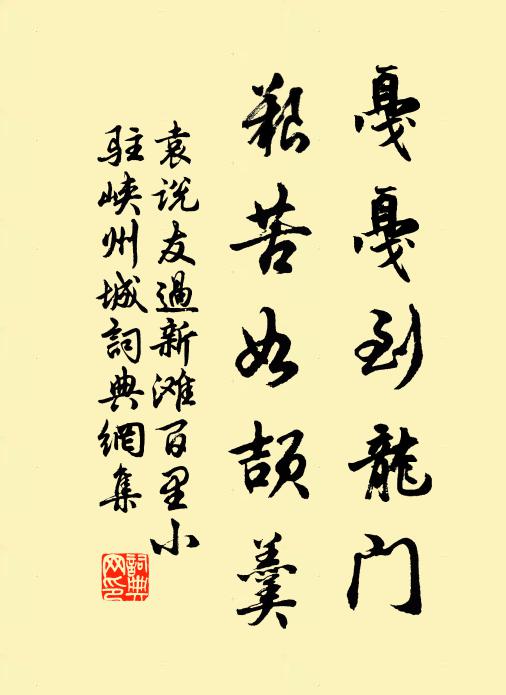 戛戛到龍门
艱苦如頡羹
袁说友過新滩百里小
駐峽州城詞典網集
詞典网印